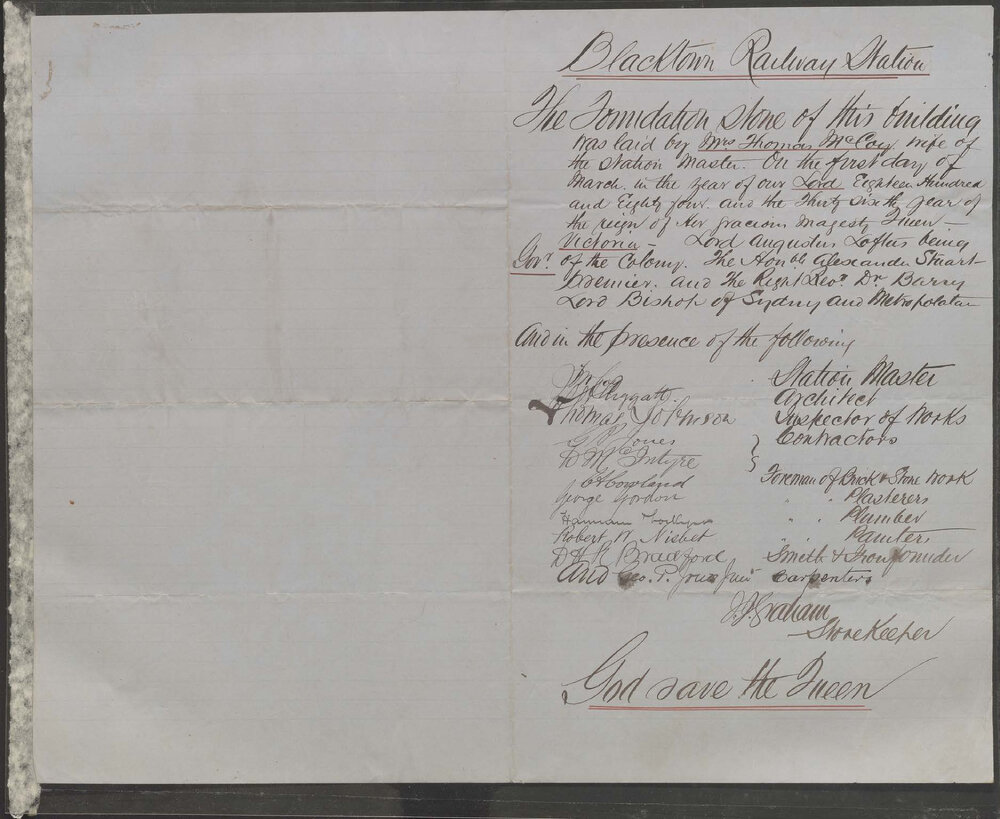 Blacktown Railway Station
The Foundation stone of this building
was laid by Mrs Thomas McCoy wife of
the Station Master. On the first day of
March. in the year of our Lord Eighteen Hundred
and Eighty four. and the Thirty sixth year of
the reign of Her gracious Magesty Queen –
Victoria – Lord Augustus Loftus being
Govr. of the Colony. The Honble Alexander Stuart
Premier. and The Right Revr. Dr. Barry
Lord Bishop of Sydny and Metropolatan
And in the presence of the following
Station Master
Architect
Thomas Johnson Inspector of Works
Jones Contractors
D McIntyre
Cowland Foreman of Brick & Stone work
George Gordon " " Plasterers
" " Plumber
Robert W. Nisbet " " Painters
D H R Bradford Smith & Iron founder
And Geo. P. Jones Junr Carpenters
J. J. Graham
StoreKeeper
God save the Queen